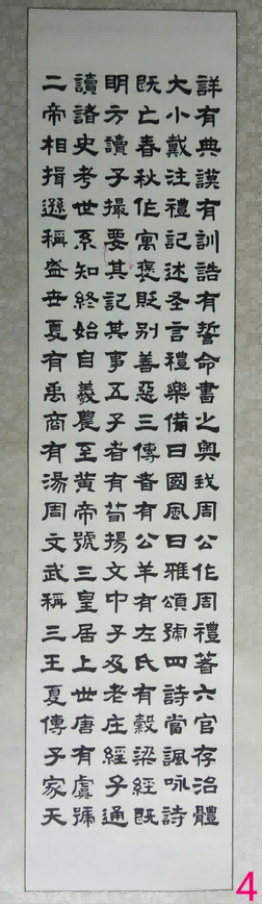 詳有典謨有訓誥有誓命書之奧我周公作周禮著六官存治體
大小戴注禮記述圣言禮樂備曰國風曰雅頌號四詩當諷咏詩
既亡春秋作寓褒貶別善惡三傳者有公羊有左氏有穀梁經既
明方讀子撮要其記其事五子者有荀揚文中子及老庄經子通
讀諸史考世系知終始自羲農至黃帝號三皇居上世唐有虞號
二帝相揖遜稱盛世夏有禹商有湯周文武稱三王夏傳子家天
4